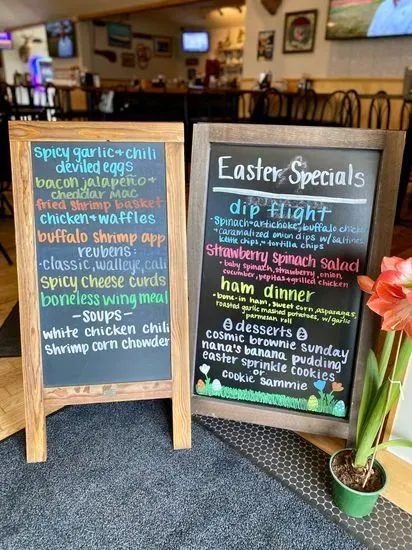 spicy garlic + chili
deviled eggs
bacon jalapeño +
cheddar mac
fried shrimp basket
chicken + waffles
buffalo shrimp app
reubens:
-classic, walleye, cali
spicy cheese curds
boneless wing meal
-soups-
white chicken chili
shrimp corn chowder
Easter Specials
dip flight
•spinach + artichoke, buffalo chicken
+ caramelized onion dips w/ saltines,
kettle chips, + tortilla chips
strawberry spinach salad
•baby spinach, strawberry, onion,
cucumber, pepitas + grilled chicken
ham dinner
•bone-in ham, sweet corn, asparagus,
roasted garlic mashed potatoes, w/ garlic
parmesan roll
desserts
cosmic brownie sunday
nana's banana pudding
easter sprinkle cookies
or
cookie sammie